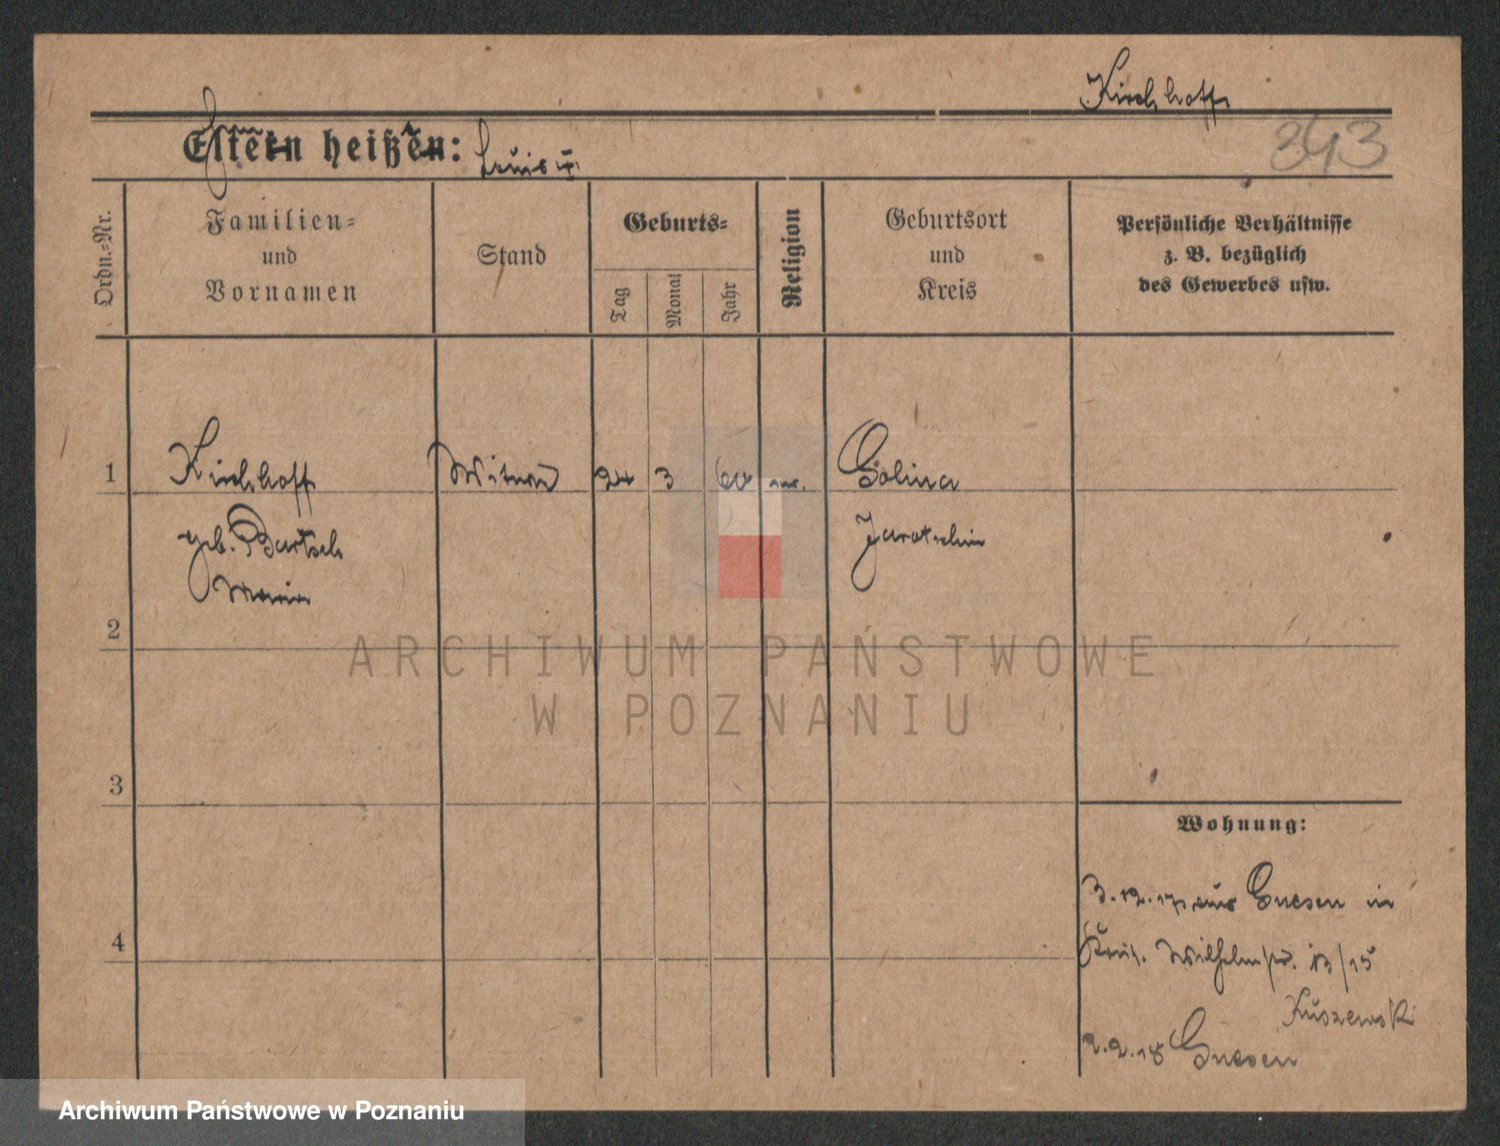 Kirchhoff
343
Eltern heißen: Louis u.
Ordn.-Nr.
Familien-
und
Vornamen
Stand
Geburts-
Tag
Monat
Jahr
Religion
Geburtsort
und
Kreis
Persönliche Verhältnisse
z. B. bezüglich
des Gewerbes usw.
1
Kirchhoff Witwe 24 3 60 Golina
geb. Bartsch Jarotschin
Maria
2
ARCHIWUM PAŃSTWOWE
W POZNANIU
3
Wohnung:
3.12.17 aus Gnesen in
4
Wilhelmstr. 13/15
Kuszewski
2.2.18 Gnesen
Archiwum Państwowe w Poznaniu